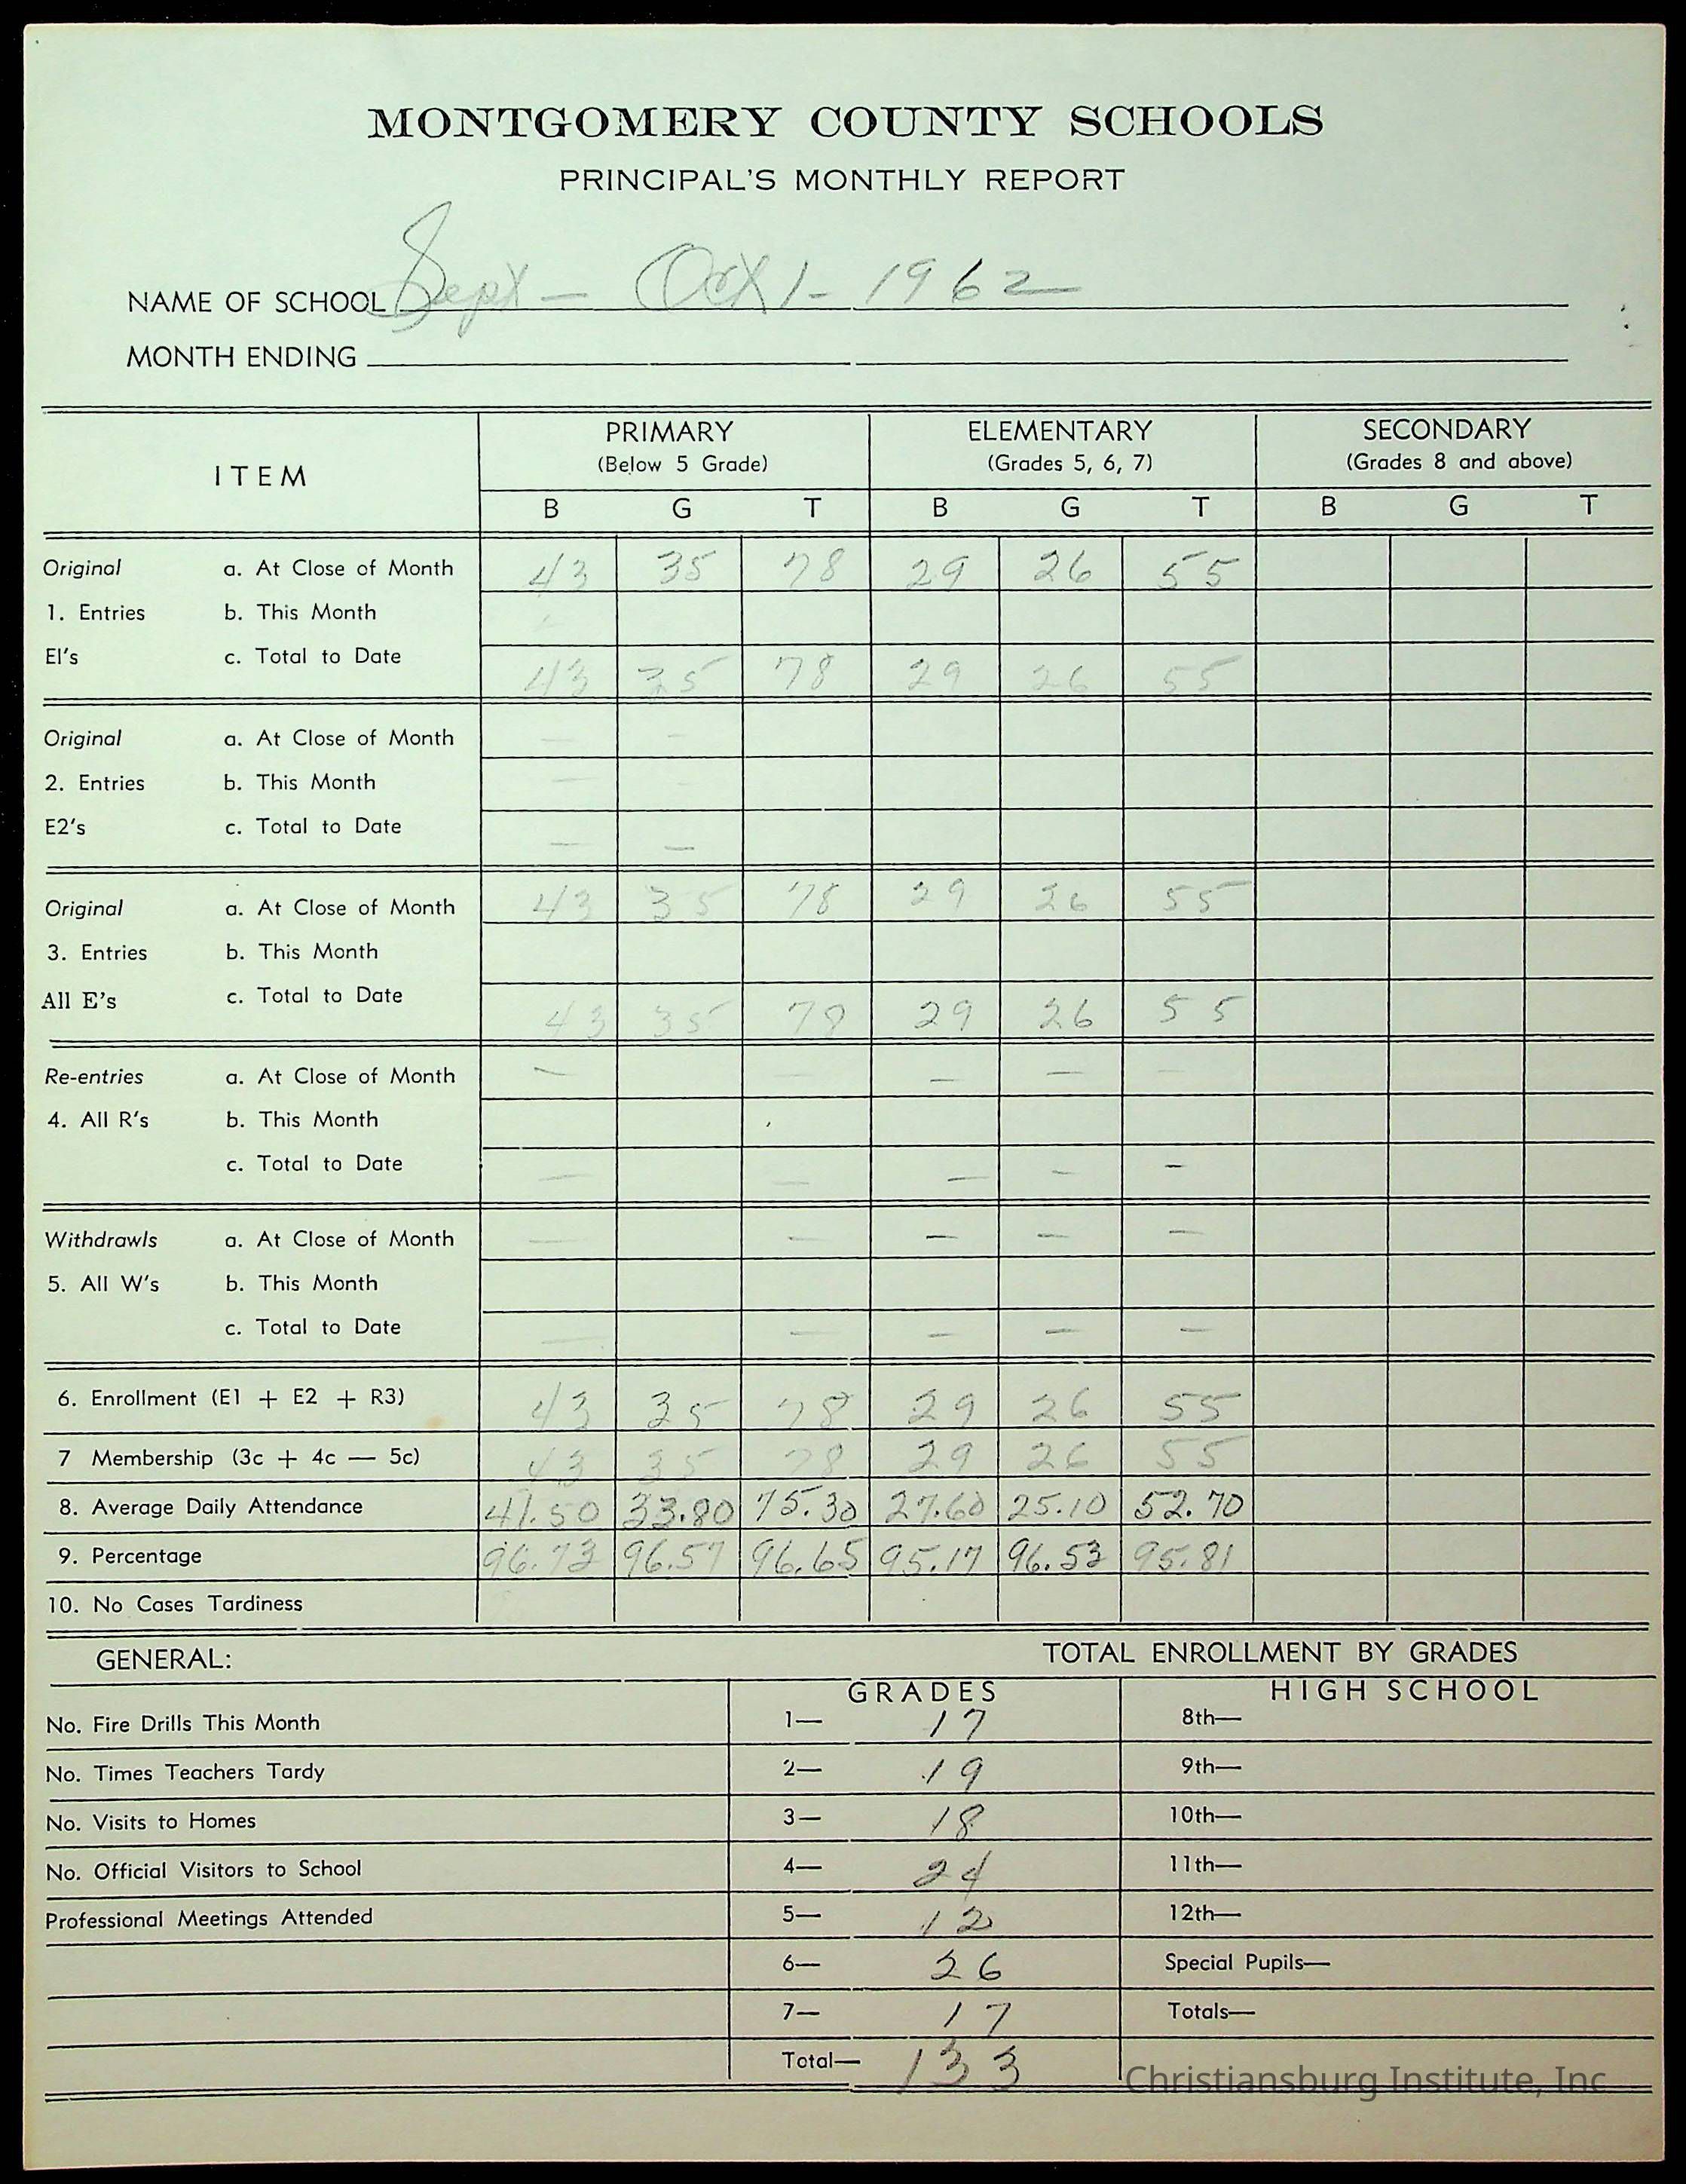 MONTGOMERY COUNTY SCHOOLS
PRINCIPAL'S MONTHLY REPORT
NAME OF SCHOOL Sept — Oct 1 - 1962
MONTH ENDING
ITEM PRIMARY ELEMENTARY SECONDARY
(Below 5 Grade) (Grades 5, 6, 7) (Grades 8 and above)
B G T B G T B G T
Original a. At Close of Month 43 35 78 29 26 55
1. Entries b. This Month
El's c. Total to Date 43 35 78 29 26 55
Original a. At Close of Month — —
2. Entries b. This Month — —
E2's c. Total to Date — —
Original a. At Close of Month 43 35 78 29 26 55
3. Entries b. This Month
All E's c. Total to Date 43 35 78 29 26 55
Re-entries a. At Close of Month — — — — —
4. All R's b. This Month
c. Total to Date — — — — —
Withdrawls a. At Close of Month — — — — —
5. All W's b. This Month
c. Total to Date — — — — —
6. Enrollment (E1 + E2 + R3) 43 35 78 29 26 55
7 Membership (3c + 4c — 5c) 43 35 78 29 26 55
8. Average Daily Attendance 41.50 33.80 75.30 27.60 25.10 52.70
9. Percentage 96.73 96.57 96.65 95.17 96.53 95.81
10. No Cases Tardiness
GENERAL: TOTAL ENROLLMENT BY GRADES
GRADES HIGH SCHOOL
No. Fire Drills This Month 1— 17 8th—
No. Times Teachers Tardy 2— 19 9th—
No. Visits to Homes 3— 18 10th—
No. Official Visitors to School 4— 24 11th—
Professional Meetings Attended 5— 12 12th—
6— 26 Special Pupils—
7— 17 Totals—
Total— 133
Christiansburg Institute, Inc